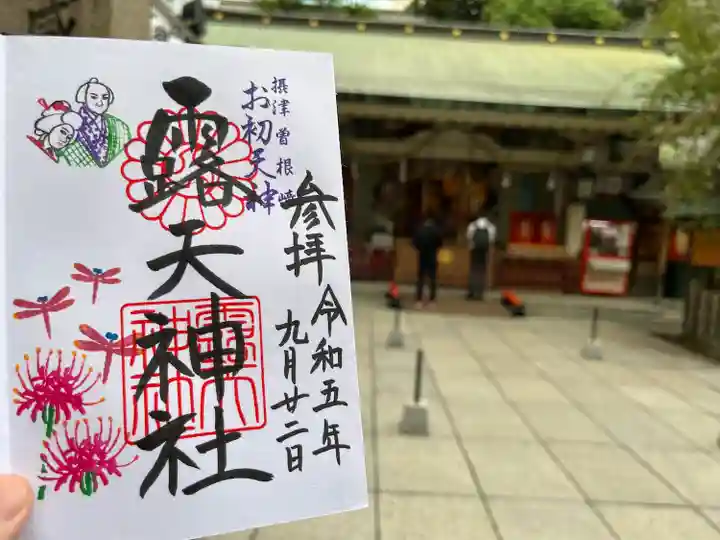 参拝
令和五年
九月廿二日
摂津曽根崎
お初天神
露天神社